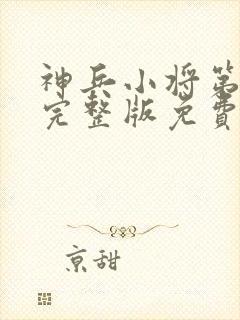 神兵小将第
完整版免费
京甜